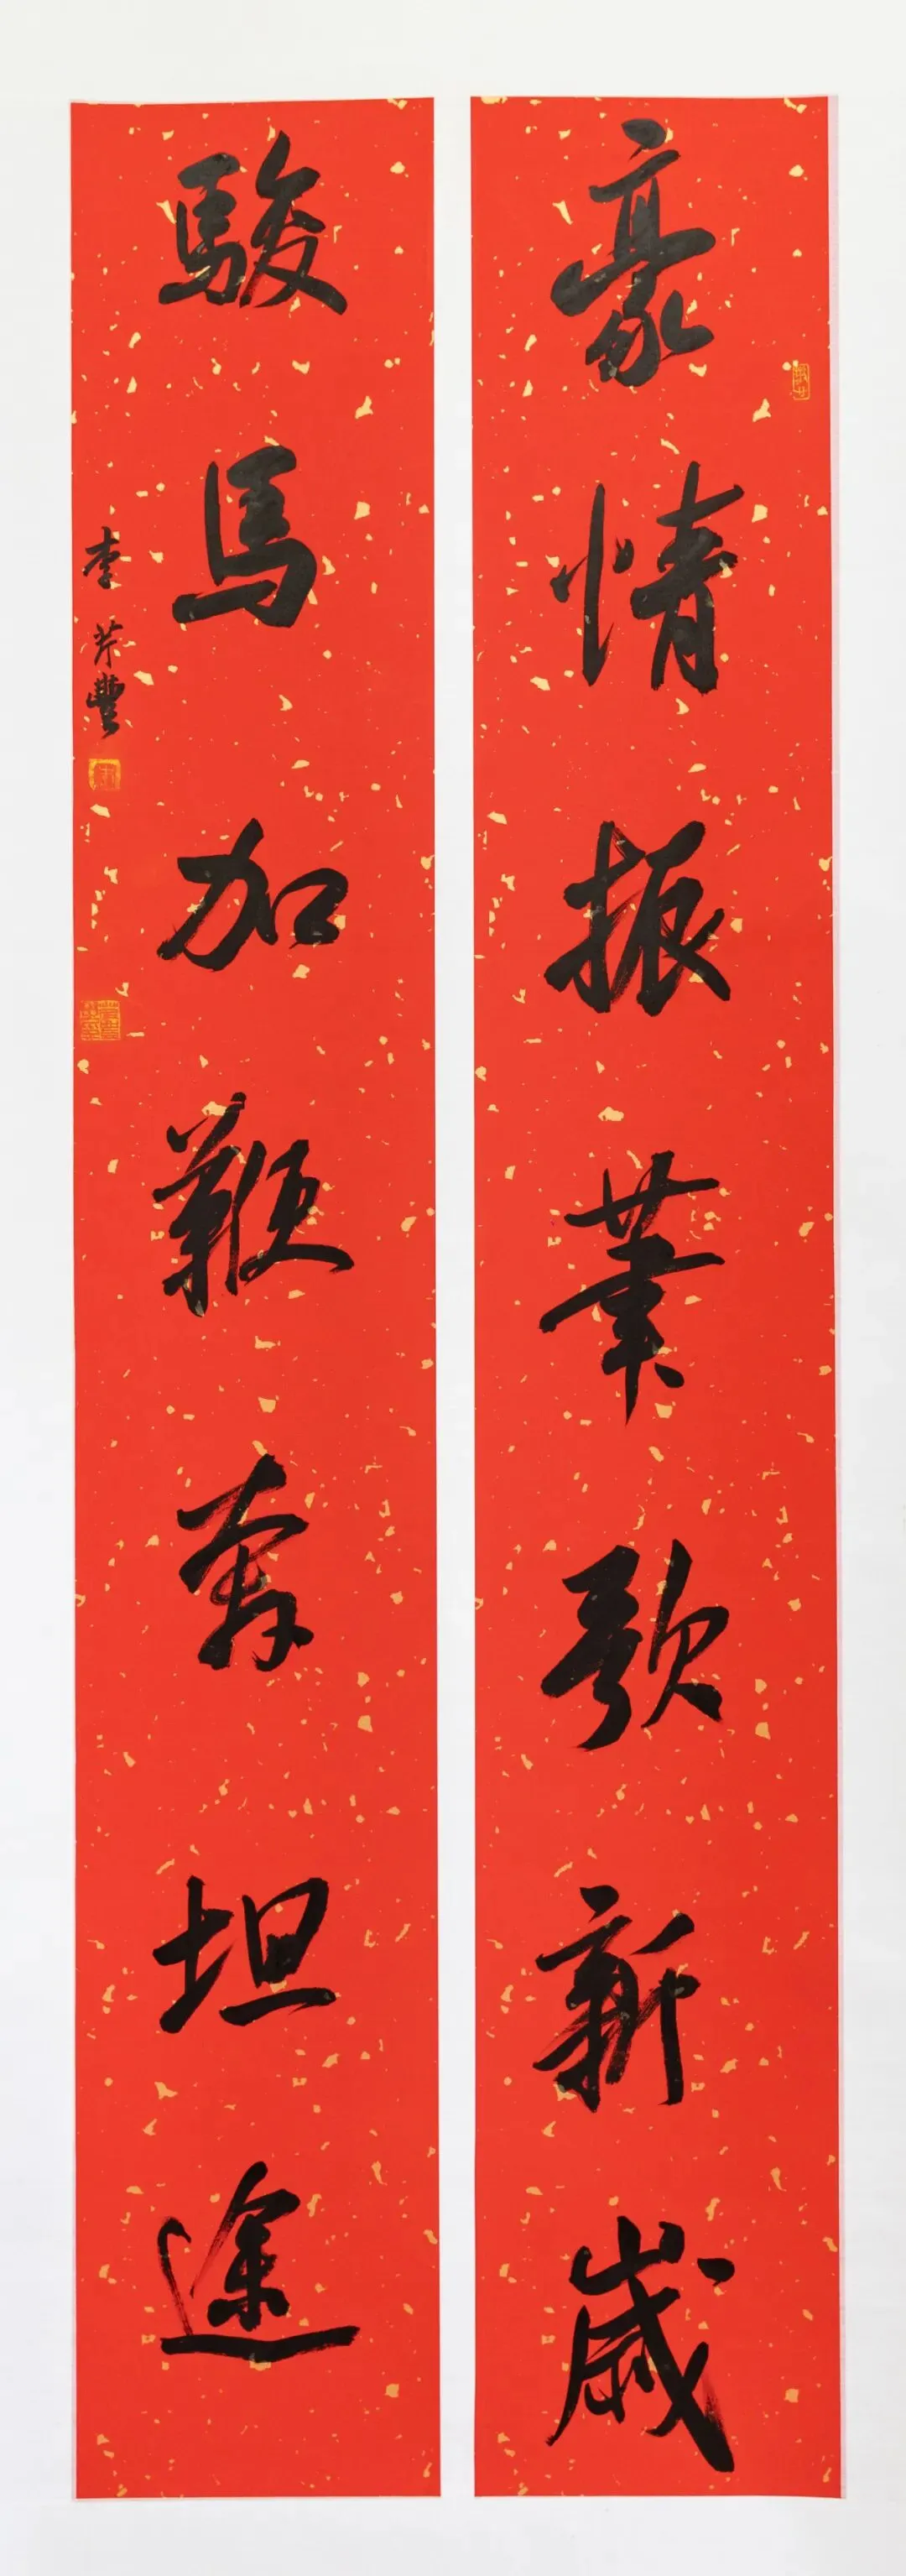 豪情振業歌新歲
駿馬加鞭奔坦途
李芹豐